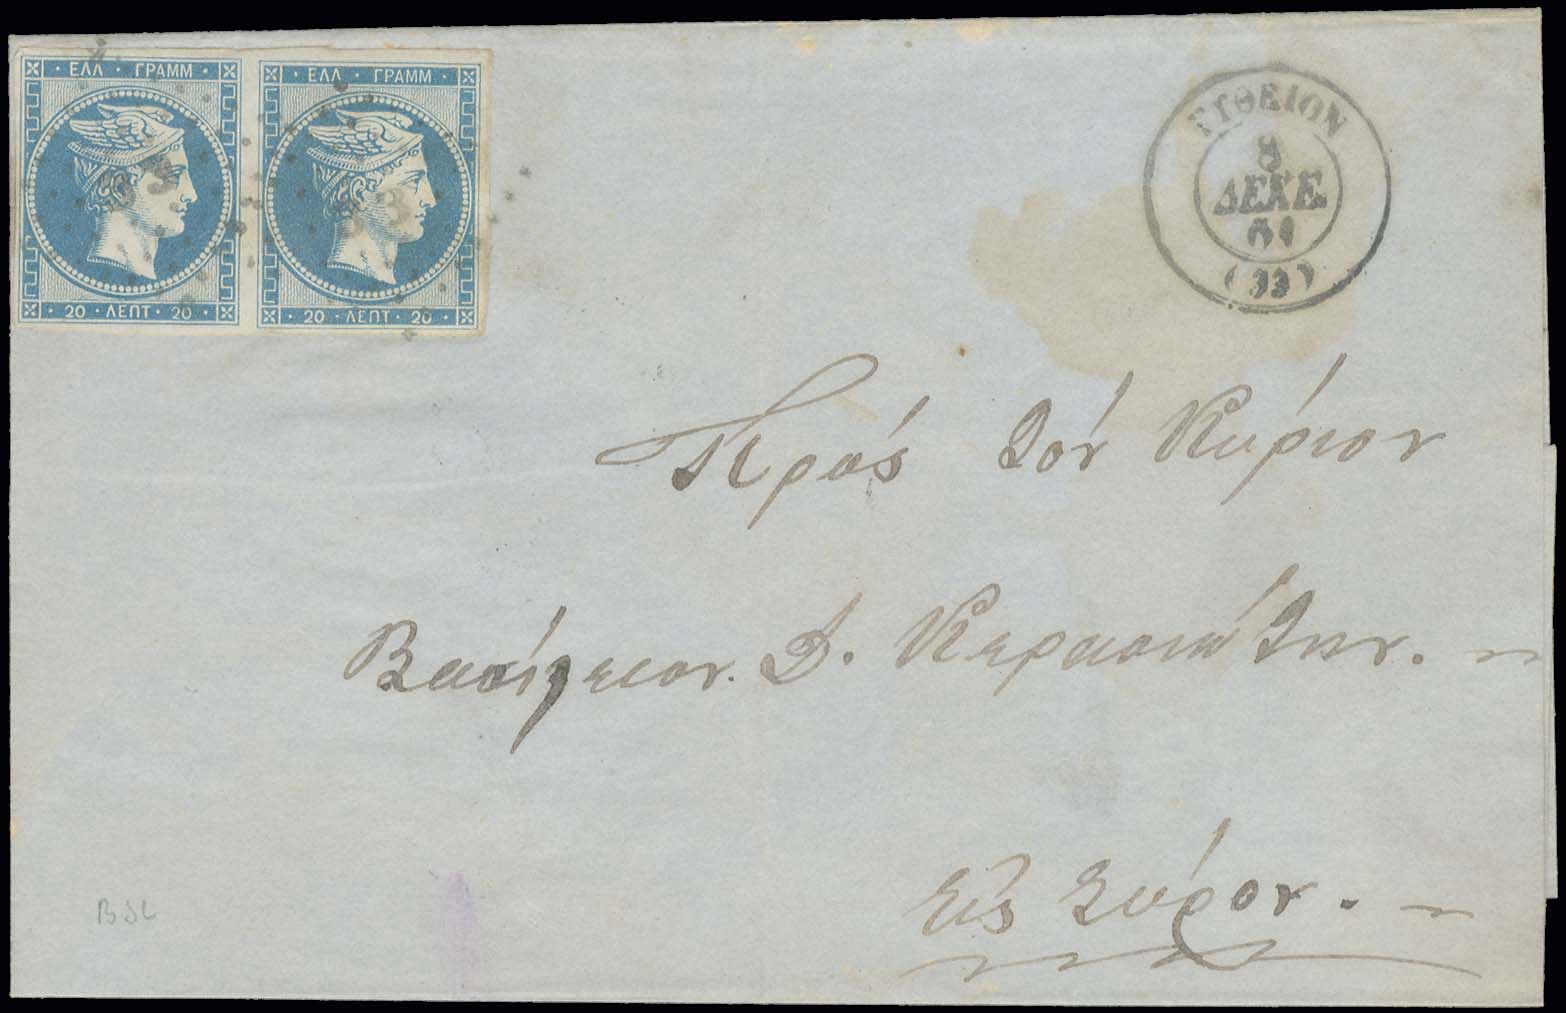 ΕΛΛ · ΓΡΑΜΜ
20 · ΛΕΠΤ · 20
ΕΛΛ · ΓΡΑΜΜ
20 · ΛΕΠΤ · 20
33
33
ΓΥΘΕΙΟΝ
8
ΔΕΚΕ.
61
(33)
Πρός τόν Κύριον
Βασίλειον. Δ. Κερασιώτην.
Εἰς Σύρον.